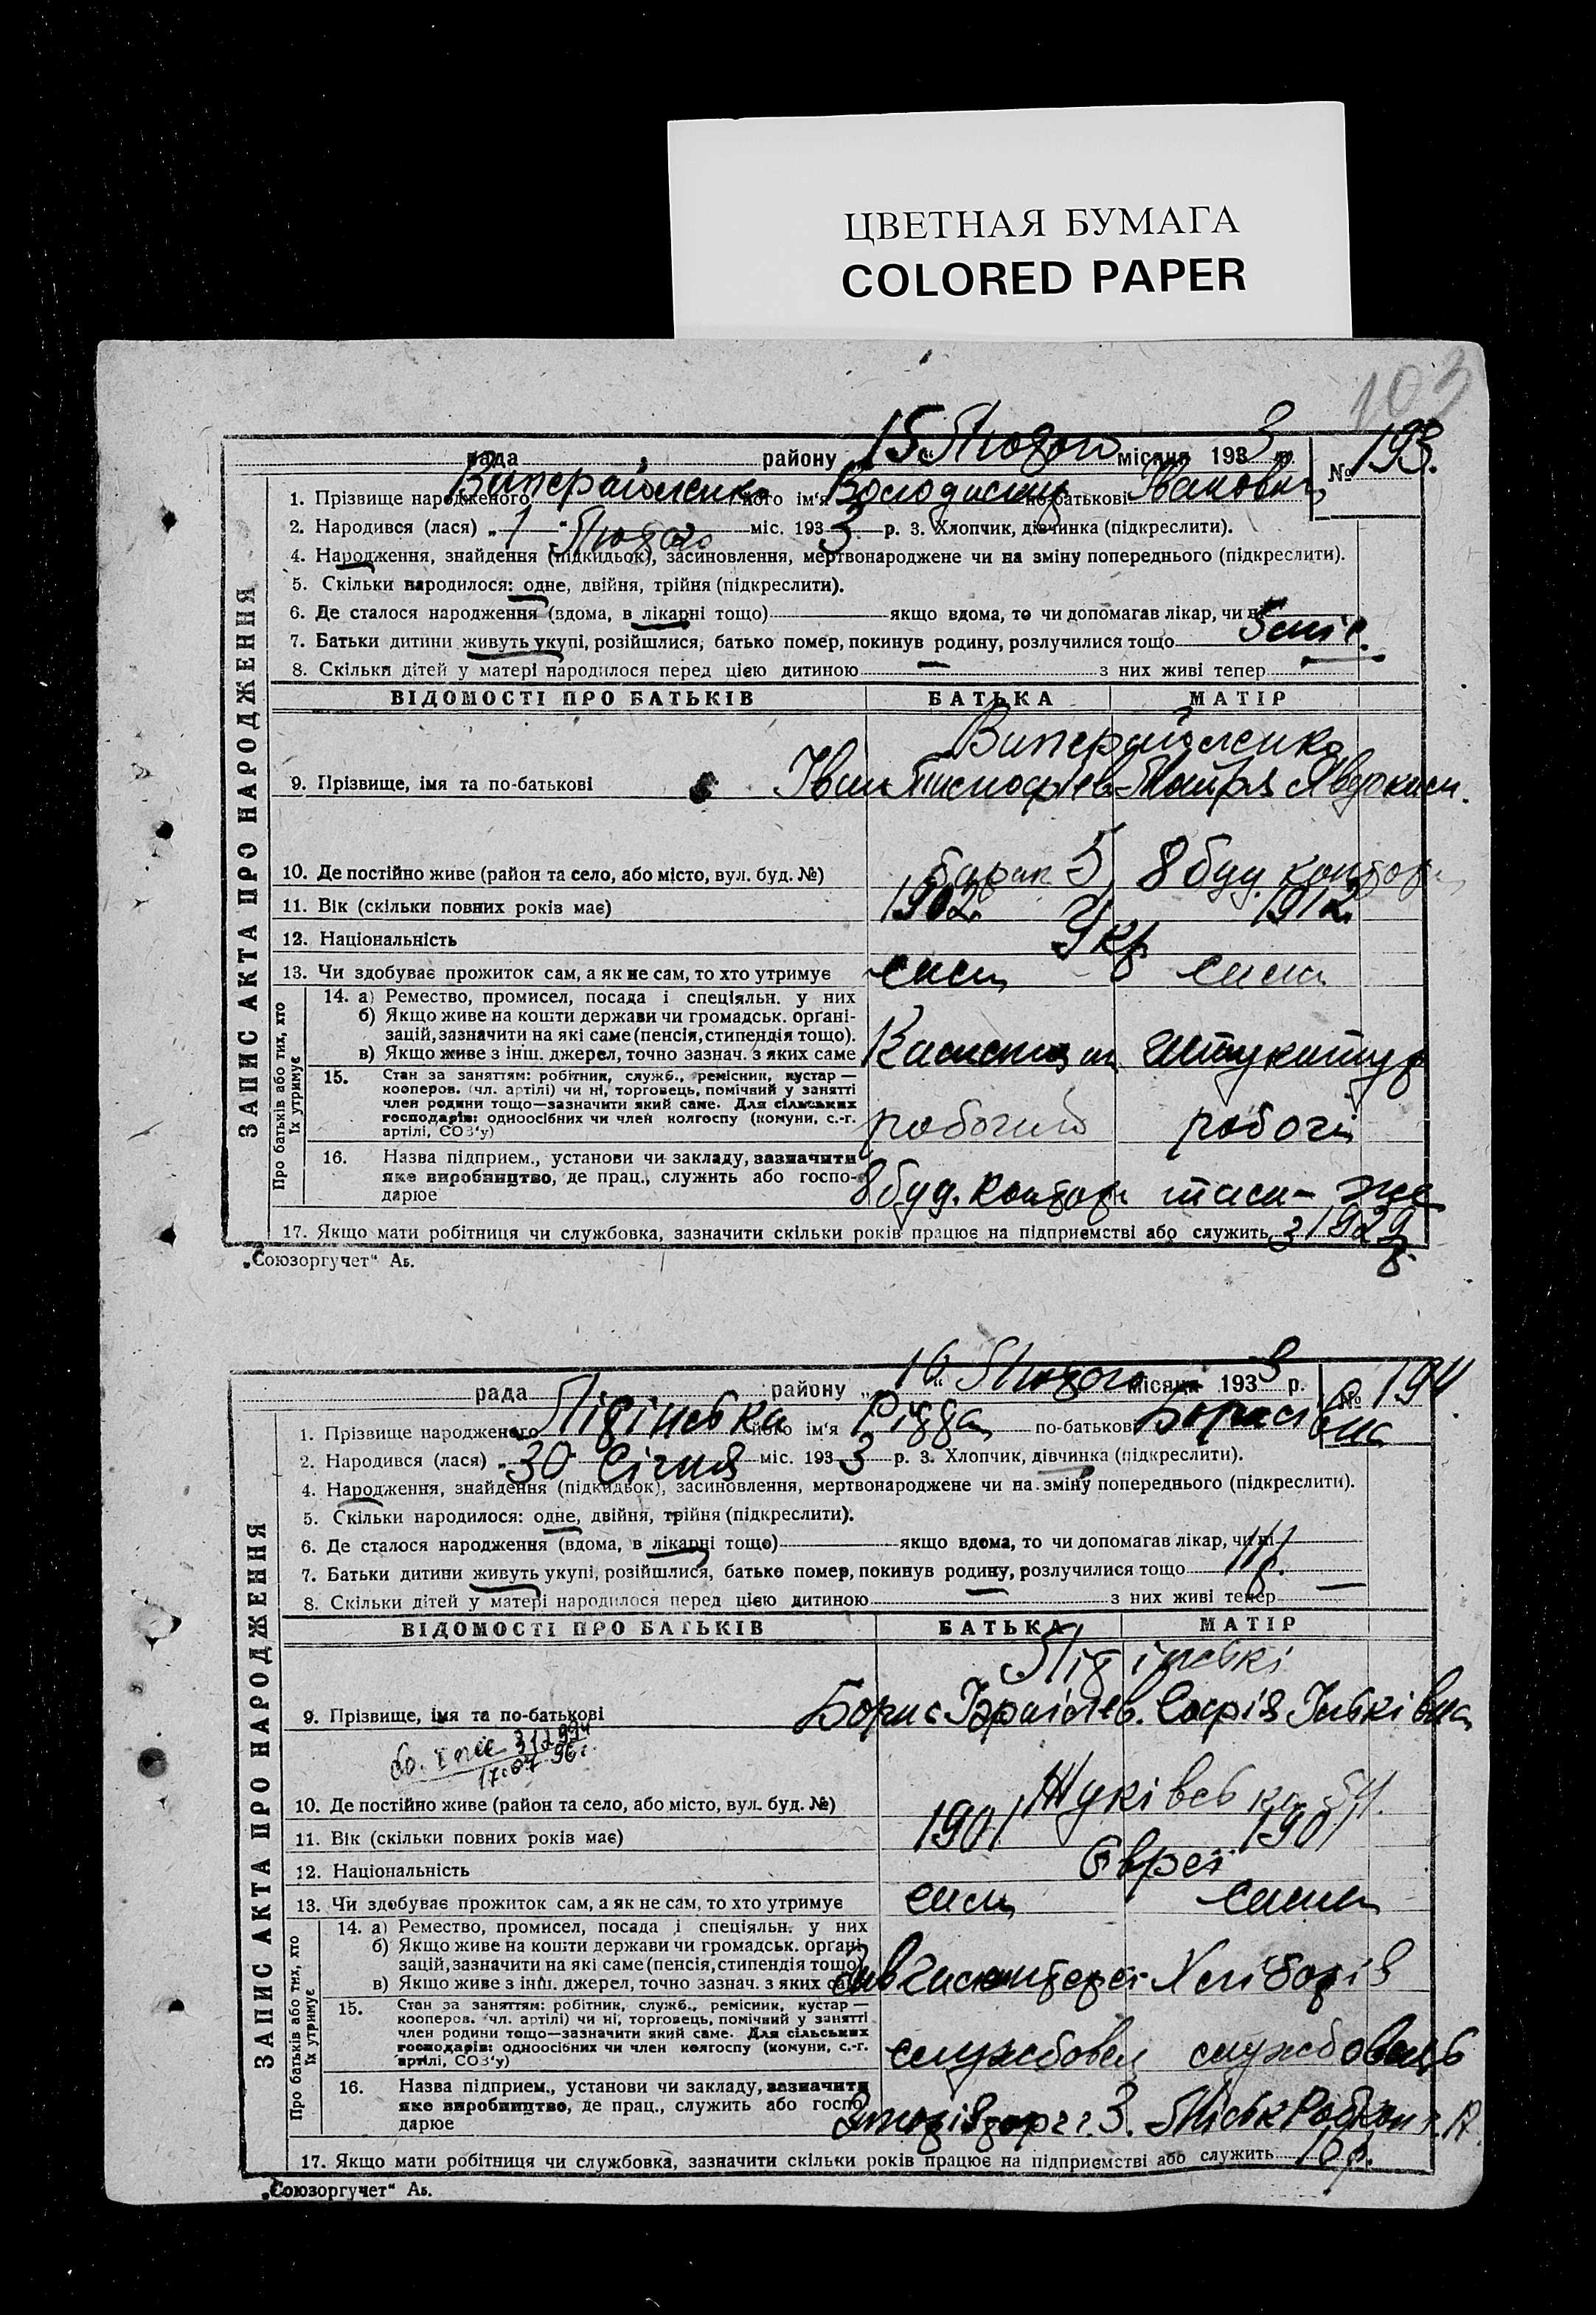 ЦВЕТНАЯ БУМАГА
COLORED PAPER
103
рада району „15“ Лютого місяця 1933 р. № 193.
1. Прізвище народженого його ім'я Володимир по-батькові Іванович
2. Народився (лася) „1“ Лютого міс. 1933 р. 3. Хлопчик, дівчинка (підкреслити).
4. Народження, знайдення (підкидьок), засиновлення, мертвонароджене чи на зміну попереднього (підкреслити).
5. Скільки народилося: одне, двійня, трійня (підкреслити).
6. Де сталося народження (вдома, в лікарні тощо) якщо вдома, то чи допомагав лікар, чи ні
7. Батьки дитини живуть укупі, розійшлися, батько помер, покинув родину, розлучилися тощо
8. Скільки дітей у матері народилося перед цією дитиною — з них живі тепер —
ЗАПИС АКТА ПРО НАРОДЖЕННЯ
ВІДОМОСТІ ПРО БАТЬКІВ БАТЬКА МАТІР
9. Прізвище, імя та по-батькові Іван
10. Де постійно живе (район та село, або місто, вул. буд. №) барак 5 8 буд. контора
11. Вік (скільки повних років має) 1902 1912
12. Національність Укр
13. Чи здобуває прожиток сам, а як не сам, то хто утримує сам сама
Про батьків або тих, хто їх утримує
14. а) Ремество, промисел, посада і спеціяльн. у них
б) Якщо живе на кошти держави чи громадськ. органі-
зацій, зазначити на які саме (пенсія, стипендія тощо).
в) Якщо живе з інш. джерел, точно зазнач. з яких саме Штукатур
15. Стан за заняттям: робітник, служб., ремісник, кустар—
кооперов. (чл. артілі) чи ні, торговець, помічний у занятті
член родини тощо—зазначити який саме. Для сільських
господарів: одноосібних чи член колгоспу (комуни, с.-г.
артілі, СОЗ'у) робочий робоча
16. Назва підприєм., установи чи закладу, зазначити
яке виробництво, де прац., служить або госпо-
дарює 8 буд. контора там-же
17. Якщо мати робітниця чи службовка, зазначити скільки років працює на підприємстві або служить з 1929 р.
„Союзоргучет“ Аь.
рада району „16“ Лютого місяця 1933 р. № 194.
1. Прізвище народженого його ім'я Рідда по-батькові Борисівна
2. Народився (лася) „30“ Січня міс. 1933 р. 3. Хлопчик, дівчинка (підкреслити).
4. Народження, знайдення (підкидьок), засиновлення, мертвонароджене чи на зміну попереднього (підкреслити).
5. Скільки народилося: одне, двійня, трійня (підкреслити).
6. Де сталося народження (вдома, в лікарні тощо) якщо вдома, то чи допомагав лікар, чи ні
7. Батьки дитини живуть укупі, розійшлися, батько помер, покинув родину, розлучилися тощо
8. Скільки дітей у матері народилося перед цією дитиною з них живі тепер —
ЗАПИС АКТА ПРО НАРОДЖЕННЯ
ВІДОМОСТІ ПРО БАТЬКІВ БАТЬКА МАТІР
9. Прізвище, імя та по-батькові Борис Ізраілев. Софія
10. Де постійно живе (район та село, або місто, вул. буд. №) Жуківська
11. Вік (скільки повних років має) 1901 1901
12. Національність Євреї
13. Чи здобуває прожиток сам, а як не сам, то хто утримує сам сама
Про батьків або тих, хто їх утримує
14. а) Ремество, промисел, посада і спеціяльн. у них
б) Якщо живе на кошти держави чи громадськ. органі-
зацій, зазначити на які саме (пенсія, стипендія тощо).
в) Якщо живе з інш. джерел, точно зазнач. з яких саме
15. Стан за заняттям: робітник, служб., ремісник, кустар—
кооперов. (чл. артілі) чи ні, торговець, помічний у занятті
член родини тощо—зазначити який саме. Для сільських
господарів: одноосібних чи член колгоспу (комуни, с.-г.
артілі, СОЗ'у)
16. Назва підприєм., установи чи закладу, зазначити
яке виробництво, де прац., служить або госпо-
дарює
17. Якщо мати робітниця чи службовка, зазначити скільки років працює на підприємстві або служить 16 р.
„Союзоргучет“ Аь.